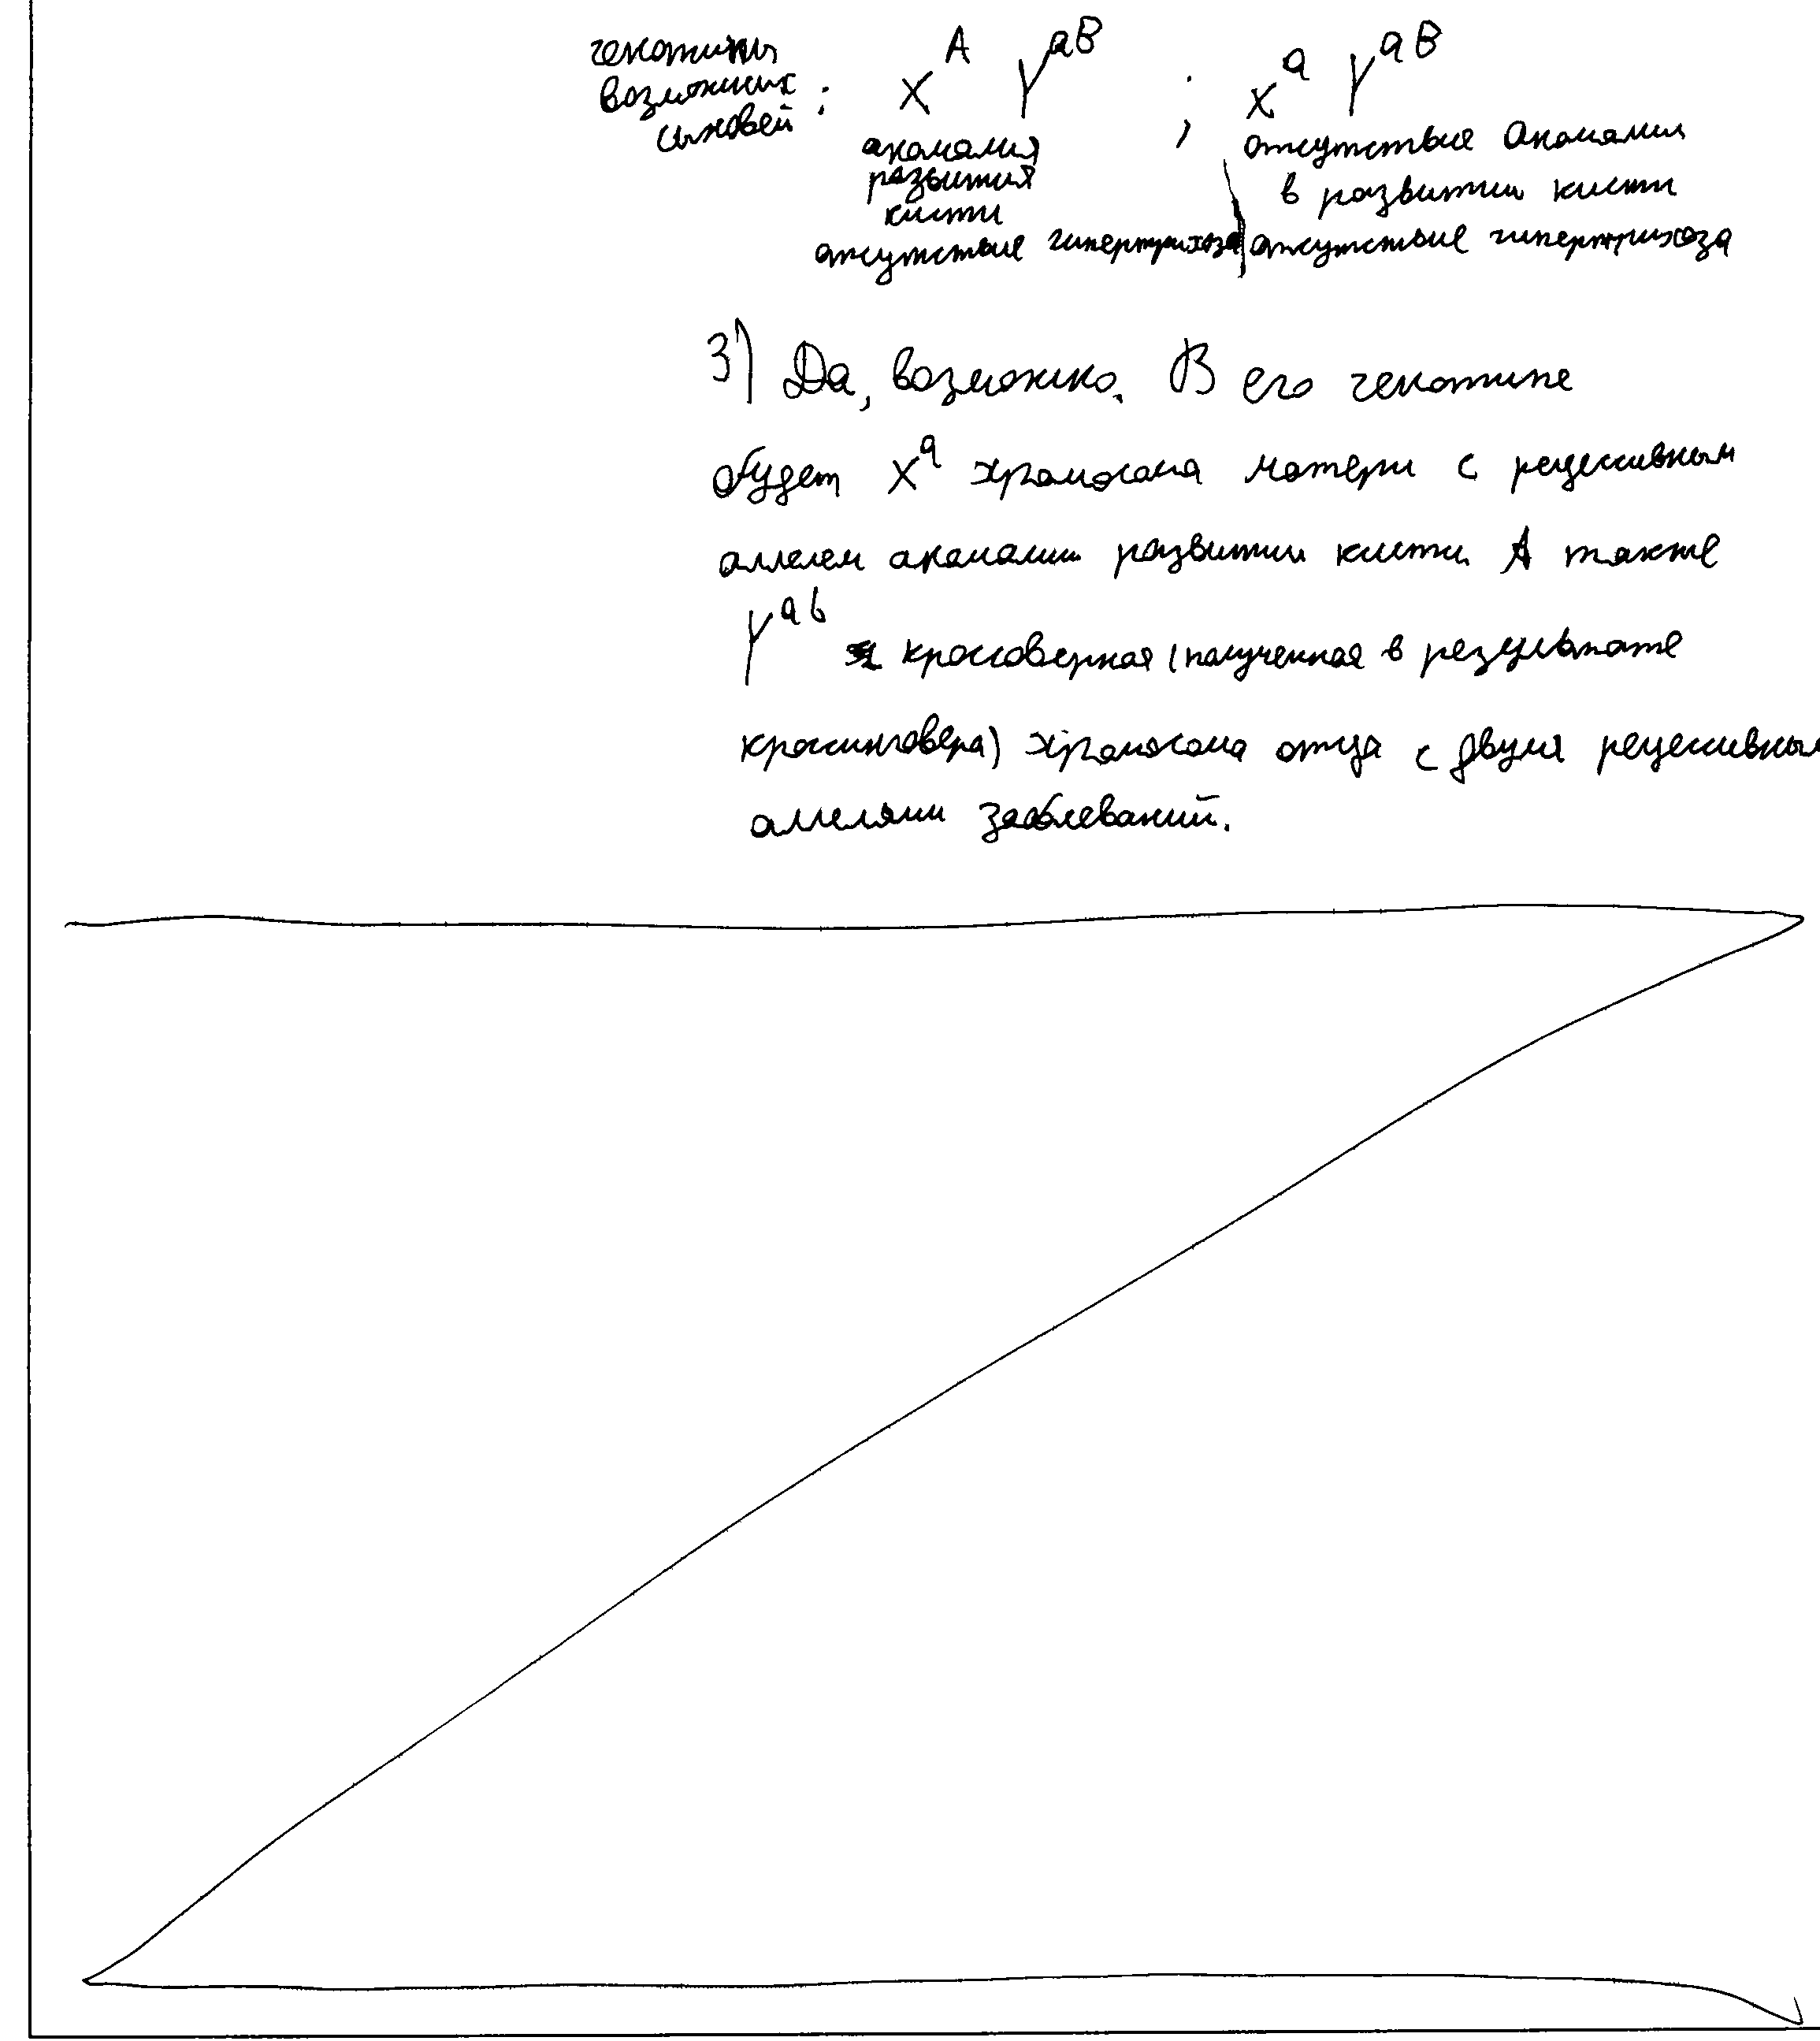 генотипы
возможных
сыновей : X^A Y^aB ; X^a Y^aB
аномалия развития кисти отсутствие гипертрихоза
отсутствие аномалии в развитии кисти отсутствие гипертрихоза
3) Да, возможно. В его генотипе
будет X^a хромосома матери с рецессивным
аллелем аномалии развитии кисти. А также
Y^ab кроссоверная (полученная в результате
кроссинговера) хромосома отца с двумя рецессивным
аллелями заболеваний.